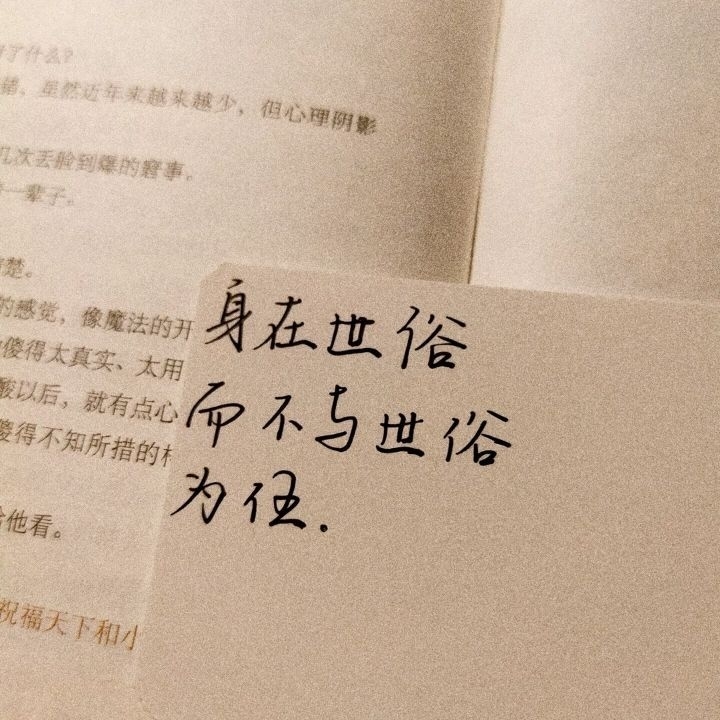 了什么?
错，虽然近年来越来越少，但心理阴影
几次丢脸到爆的窘事。
一辈子。
楚。
的感觉，像魔法的开
傻得太真实、太用
酸以后，就有点心
傻得不知所措的
给他看。
祝福天下和小
身在世俗
而不与世俗
为伍.